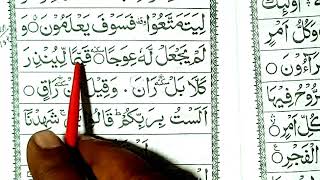 لِيَتَمَتَّعُوْا فَسَوْفَ يَعْلَمُوْنَ ۝ وَ
لَمْ يَجْعَلْ لَّهٗ عِوَجًا ۜ قَيِّمًا لِّيُنْذِرَ
كَلَّا بَلْ ۜ رَانَ ، وَقِيْلَ رَاقٍ
اَلَسْتُ بِرَبِّكُمْ ؕ قَالُوْا شَهِدْنَا
اُولٰٓئِكَ
وَكُلُّ اَمْرٍ
رَآءُوْنَ ۝
رُّوْحُ فِيْهَا
كُلِّ اَمْرٍ ۝
الْفَجْرِ ۝